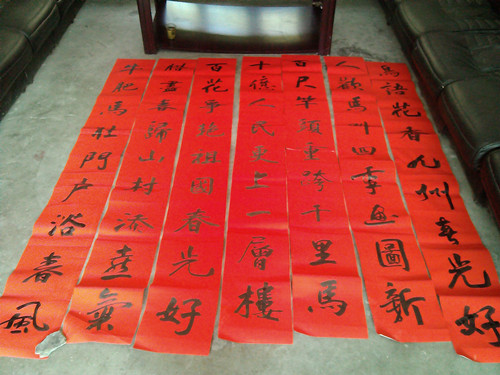 鳥語花香九州春光好
人歡馬叫四季画圖新
百尺竿頭重跨千里馬
十億人民更上一層樓
百花爭艷祖國春光好
似畫春歸山村添喜氣
牛肥馬壯門户浴春風